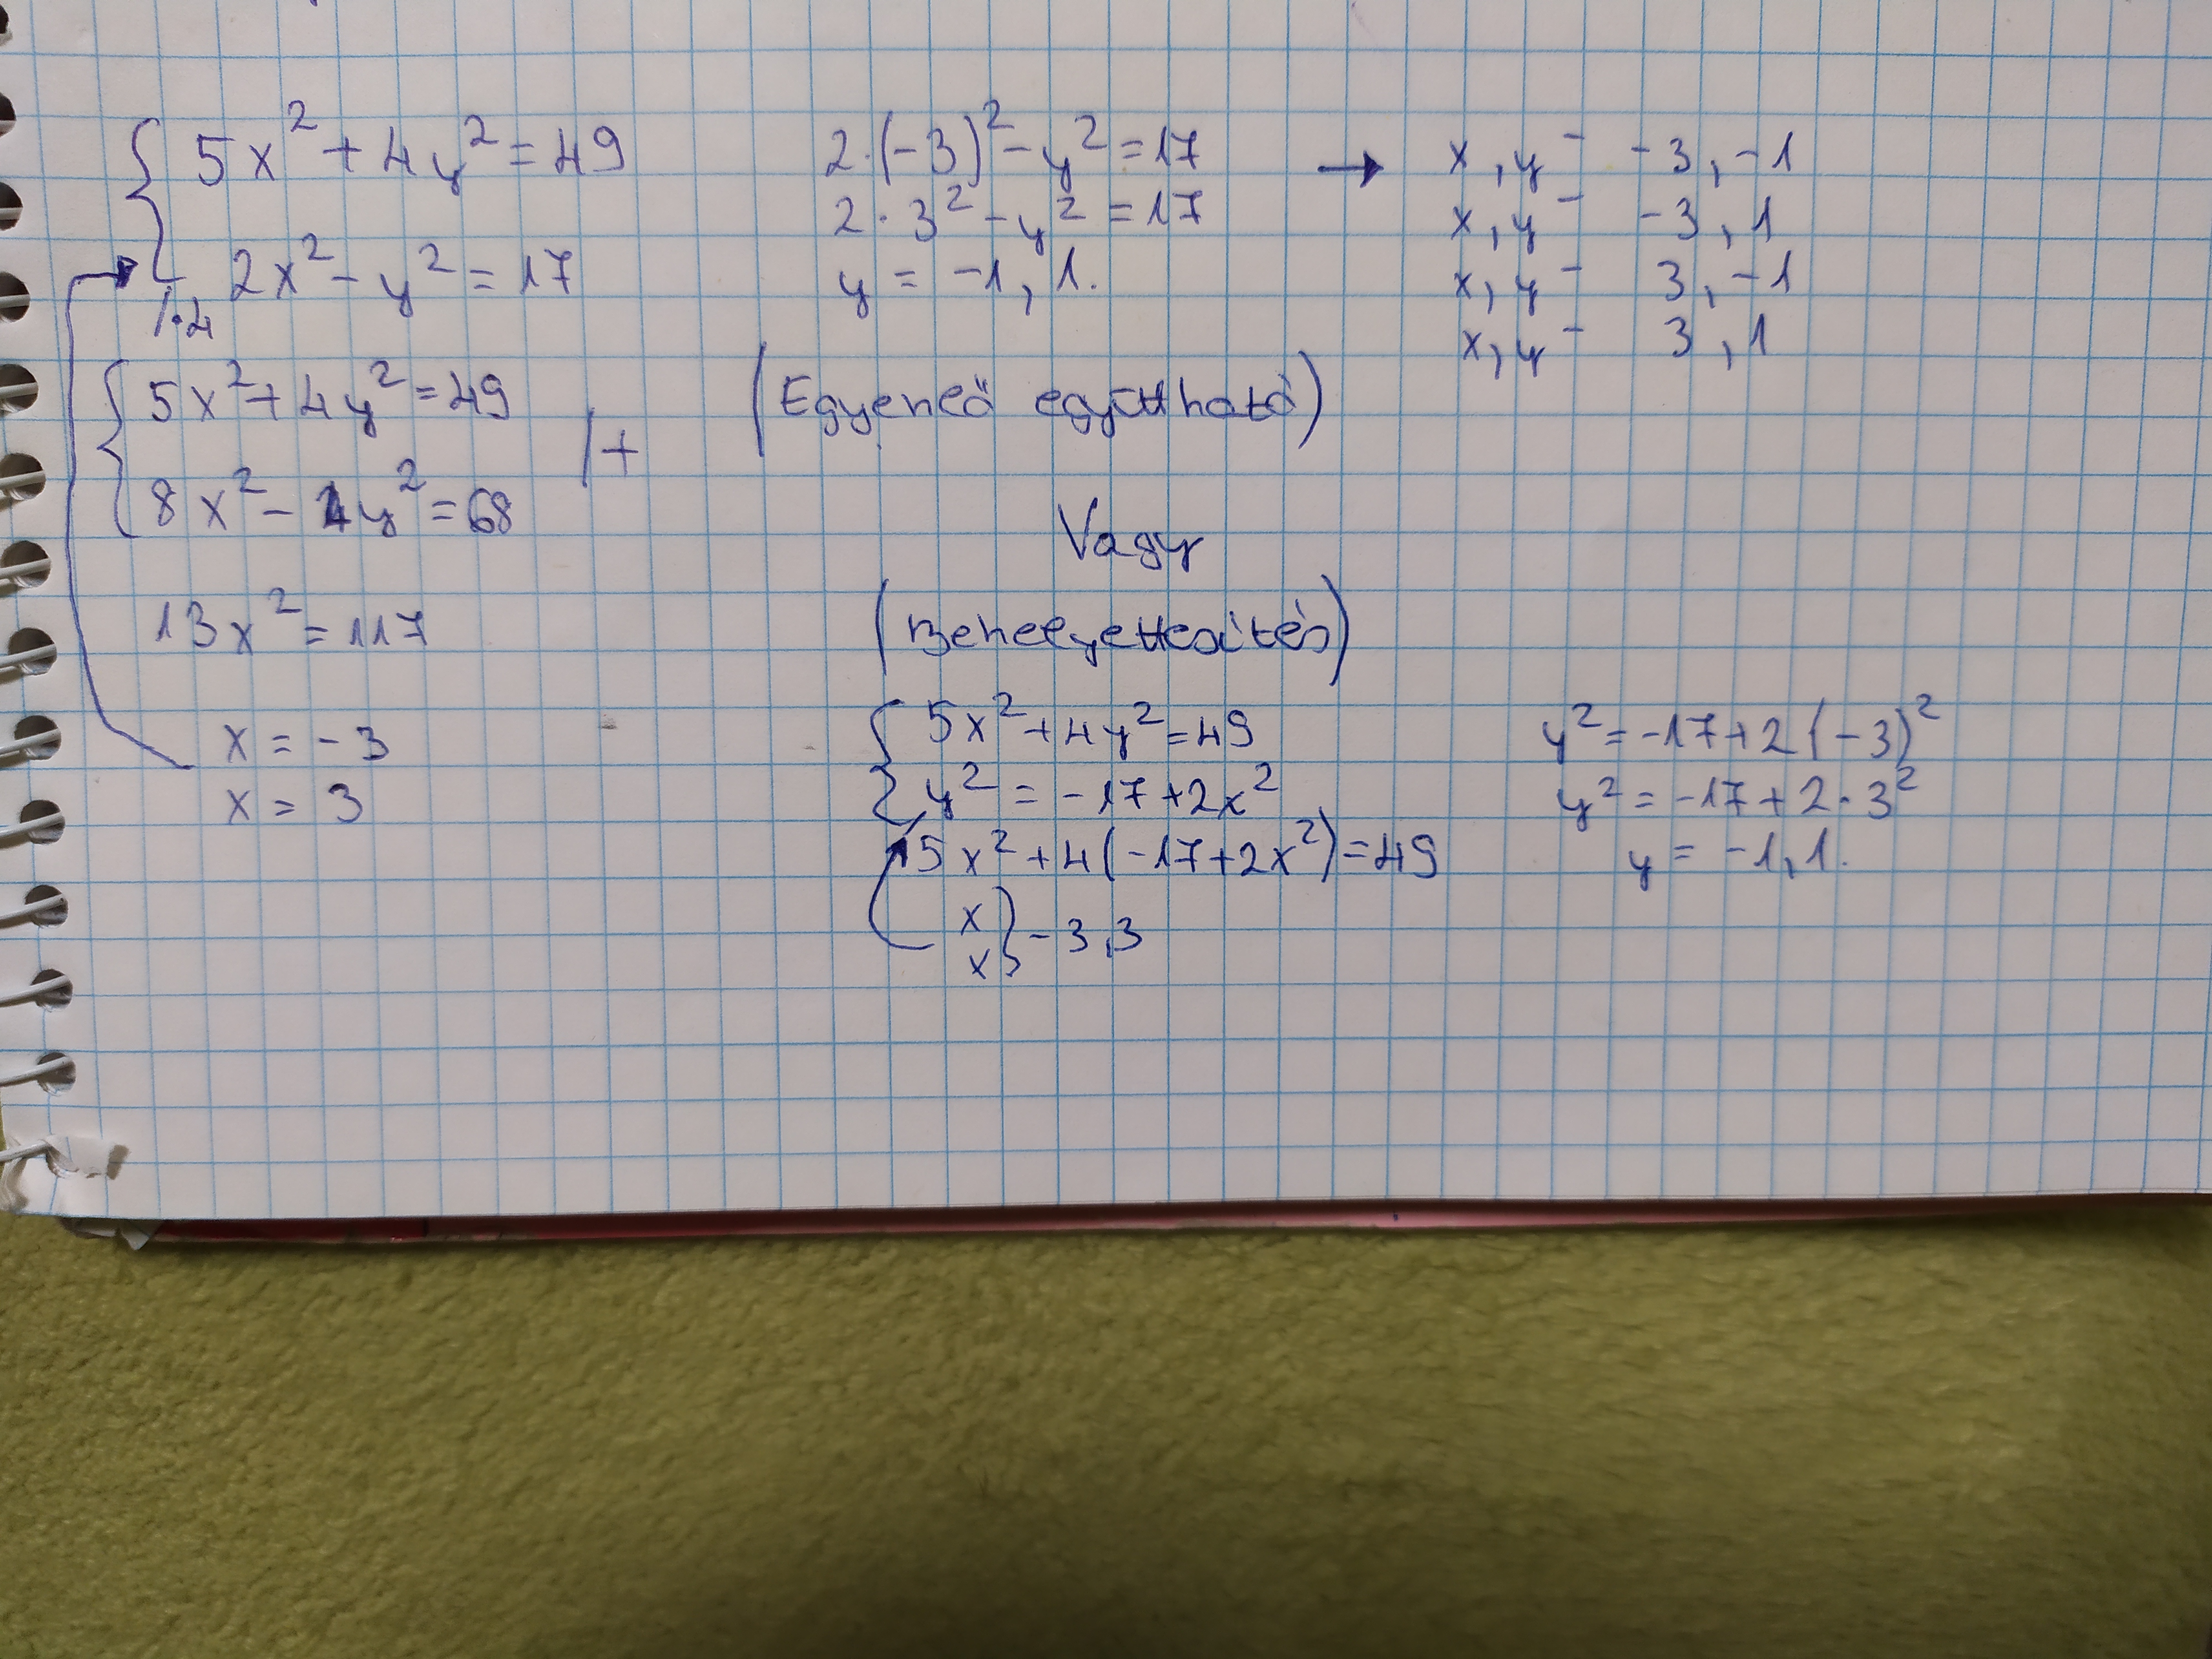 5x² + 4y² = 49
2x² - y² = 17
/·4
5x² + 4y² = 49
/+
8x² - 4y² = 68
13x² = 117
x = -3
x = 3
2·(-3)² - y² = 17
2·3² - y² = 17
y = -1, 1.
→ x, y - -3, -1
x, y - -3, 1
x, y - 3, -1
x, y - 3, 1
(Egyenlő együttható)
Vagy
(Behelyettesítés)
5x² + 4y² = 49
y² = -17 + 2x²
5x² + 4(-17 + 2x²) = 49
x
x } -3, 3
y² = -17 + 2(-3)²
y² = -17 + 2·3²
y = -1, 1.